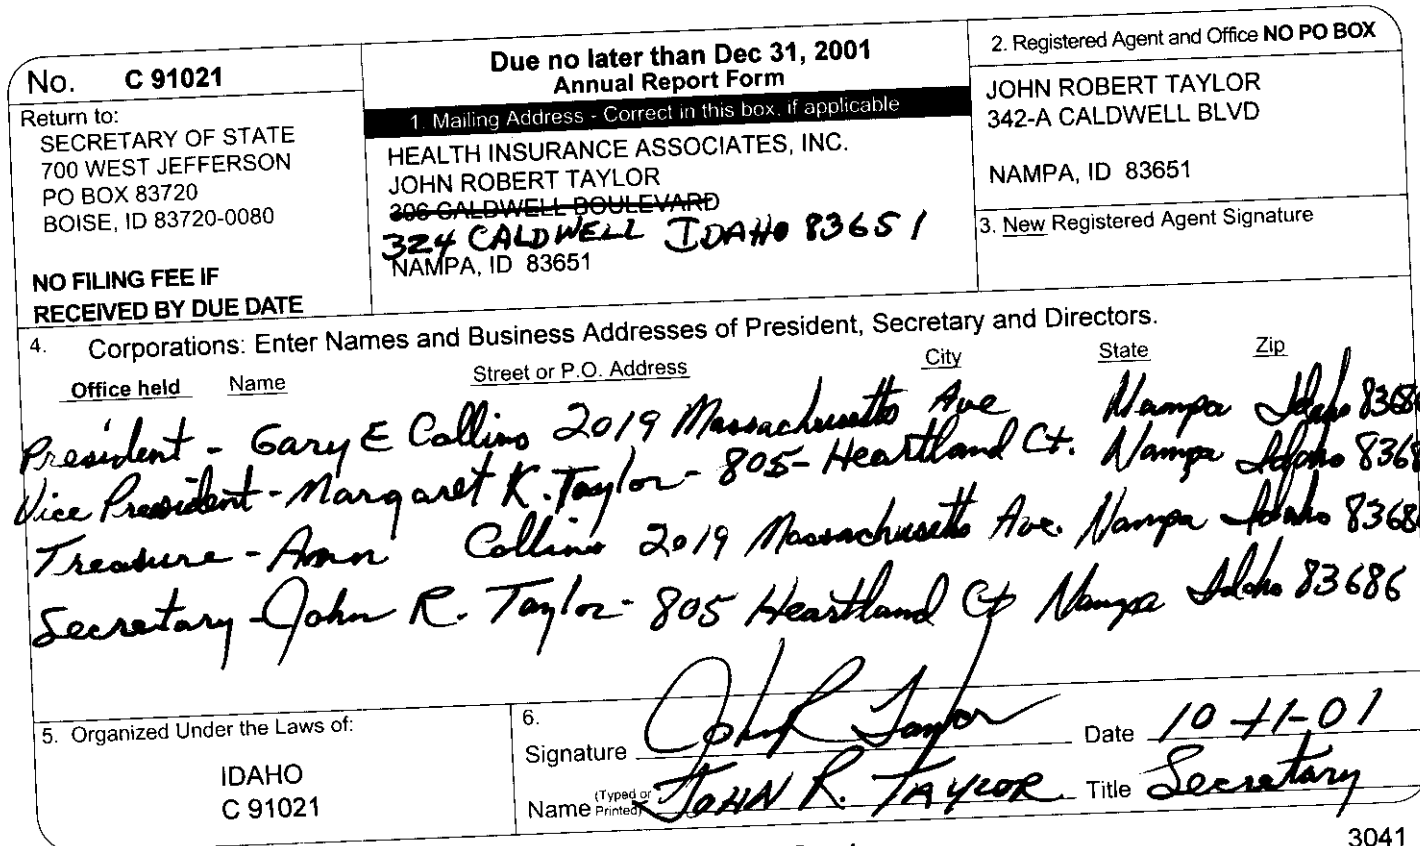 No. C 91021
Return to:
SECRETARY OF STATE
700 WEST JEFFERSON
PO BOX 83720
BOISE, ID 83720-0080
NO FILING FEE IF
RECEIVED BY DUE DATE
Due no later than Dec 31, 2001
Annual Report Form
1. Mailing Address - Correct in this box, if applicable
HEALTH INSURANCE ASSOCIATES, INC.
JOHN ROBERT TAYLOR
306 CALDWELL BOULEVARD
324 CALDWELL IDAHO 83651
NAMPA, ID 83651
2. Registered Agent and Office NO PO BOX
JOHN ROBERT TAYLOR
342-A CALDWELL BLVD
NAMPA, ID 83651
3. New Registered Agent Signature
4. Corporations: Enter Names and Business Addresses of President, Secretary and Directors.
Office held Name Street or P.O. Address City State Zip
President - Gary E Collins 2019 Massachusetts Ave Nampa Idaho 8368
Vice President - Margaret K. Taylor - 805 - Heartland Ct. Nampa Idaho 8368
Treasure - Ann Collins 2019 Massachusetts Ave. Nampa Idaho 8368
Secretary - John R. Taylor - 805 Heartland Ct Nampa Idaho 83686
5. Organized Under the Laws of:
IDAHO
C 91021
6.
Signature John R Taylor Date 10-11-01
Name (Typed or Printed) JOHN R. TAYLOR Title Secretary
3041